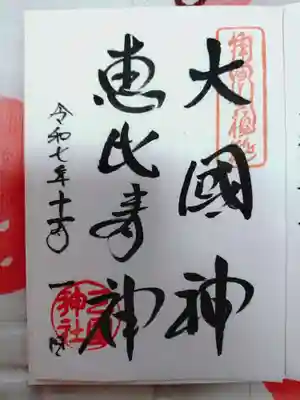 大國神
恵比寿神
令和七年十一月一日
神社